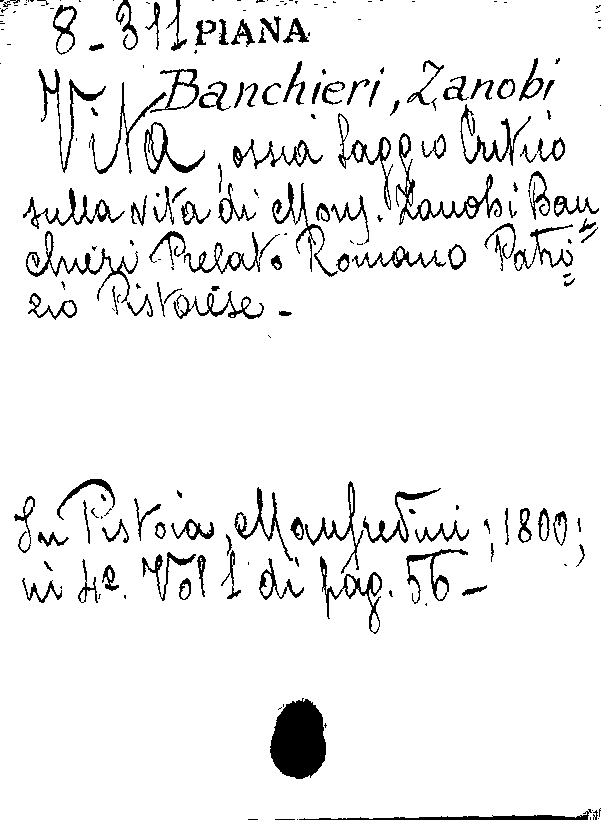 8-311 PIANA
Banchieri, Zanobi
Vita, ossia Saggio Critico
sulla vita di Mons. Zanobi Ban=
chieri Prelato Romano Patri=
zio Pistoiese -
In Pistoia, Manfredini; 1800;
in 4º. Vol 1 di pag. 56 -